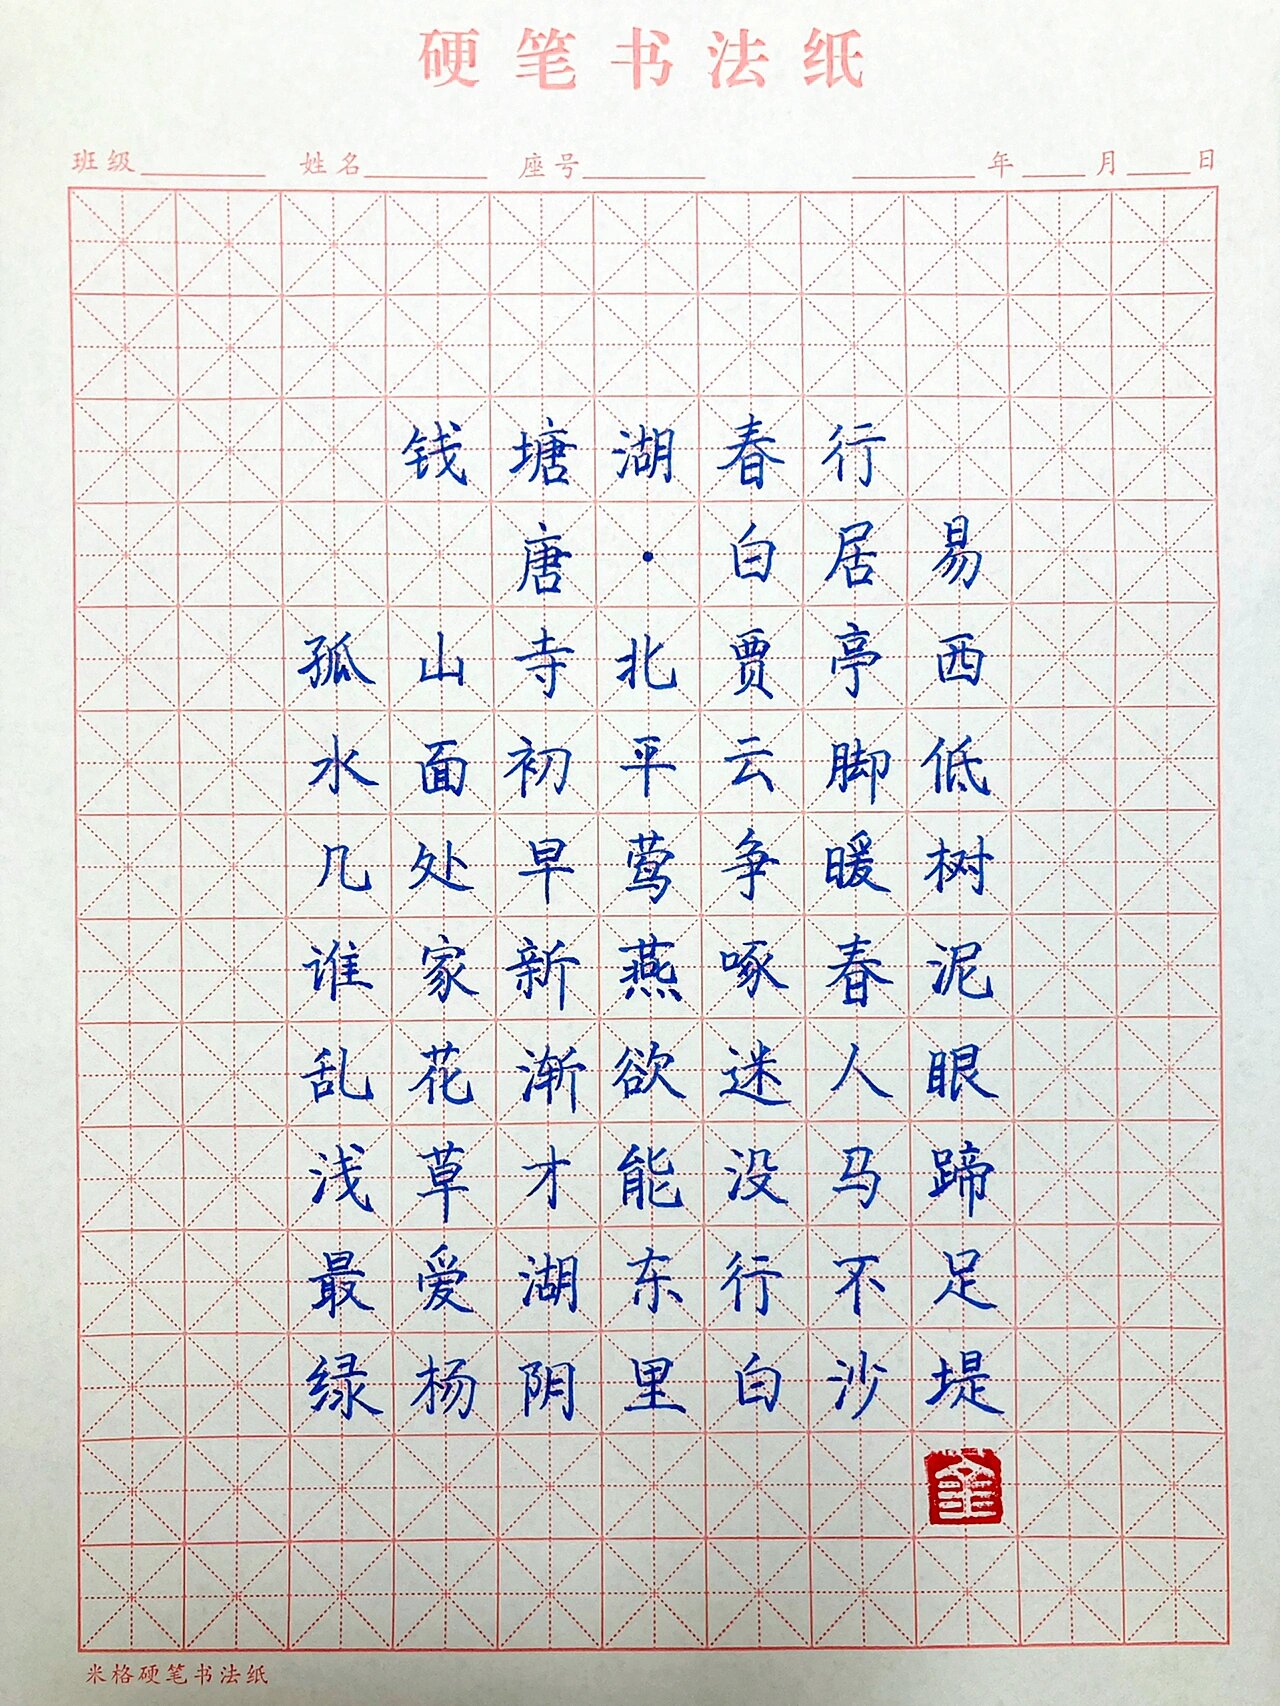 硬笔书法纸
班级 姓名 座号 年 月 日
钱塘湖春行
唐·白居易
孤山寺北贾亭西
水面初平云脚低
几处早莺争暖树
谁家新燕啄春泥
乱花渐欲迷人眼
浅草才能没马蹄
最爱湖东行不足
绿杨阴里白沙堤
米格硬笔书法纸